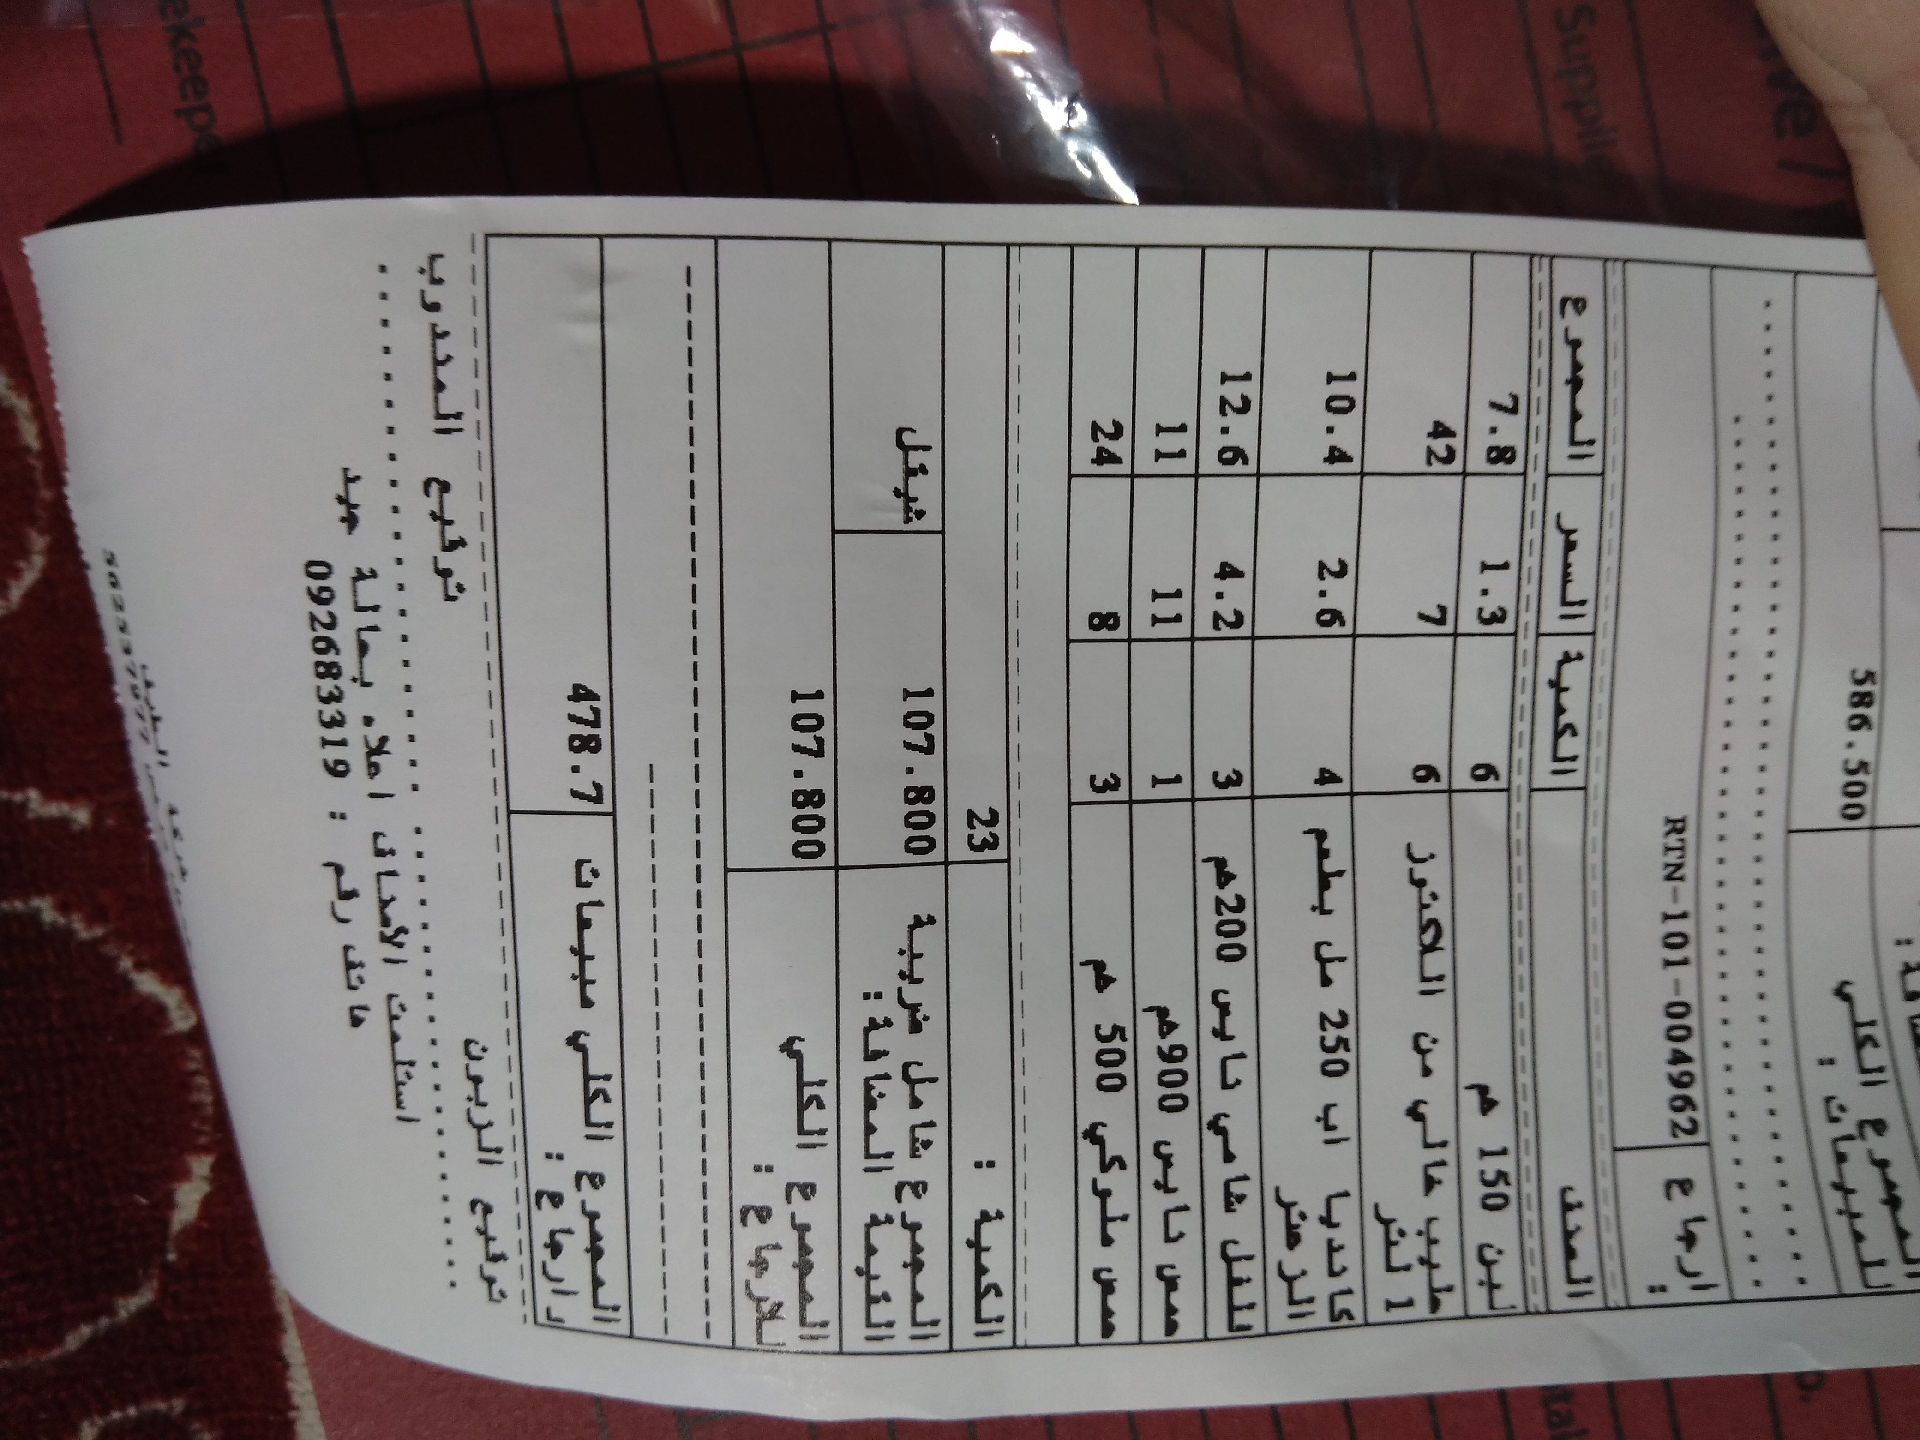 المجموع الكلي 586.500
للمبيعات :
ارجاع RTN-101-004962
:
الصنف الكمية السعر المجموع
لبن 150 جم 6 1.3 7.8
حليب خالي من اللاكتوز 6 7 42
1 لتر
كانديا اب 250 مل بطعم 4 2.6 10.4
فلفل شامي نايس 200جم 3 4.2 12.6
نايس 900جم 1 11 11
ملوكي 500 جم 3 8 24
الكمية : 23
المجموع شامل ضريبة 107.800 شيكل
القيمة المضافة:
المجموع الكلي 107.800
للارجاع :
المجموع الكلي مبيعات 478.7
وارجاع :
توقيع الزبون توقيع المندوب
استلمت الأصناف اعلاه بحالة جيد
هاتف رقم : 0926833319
ekeeper
Supplie